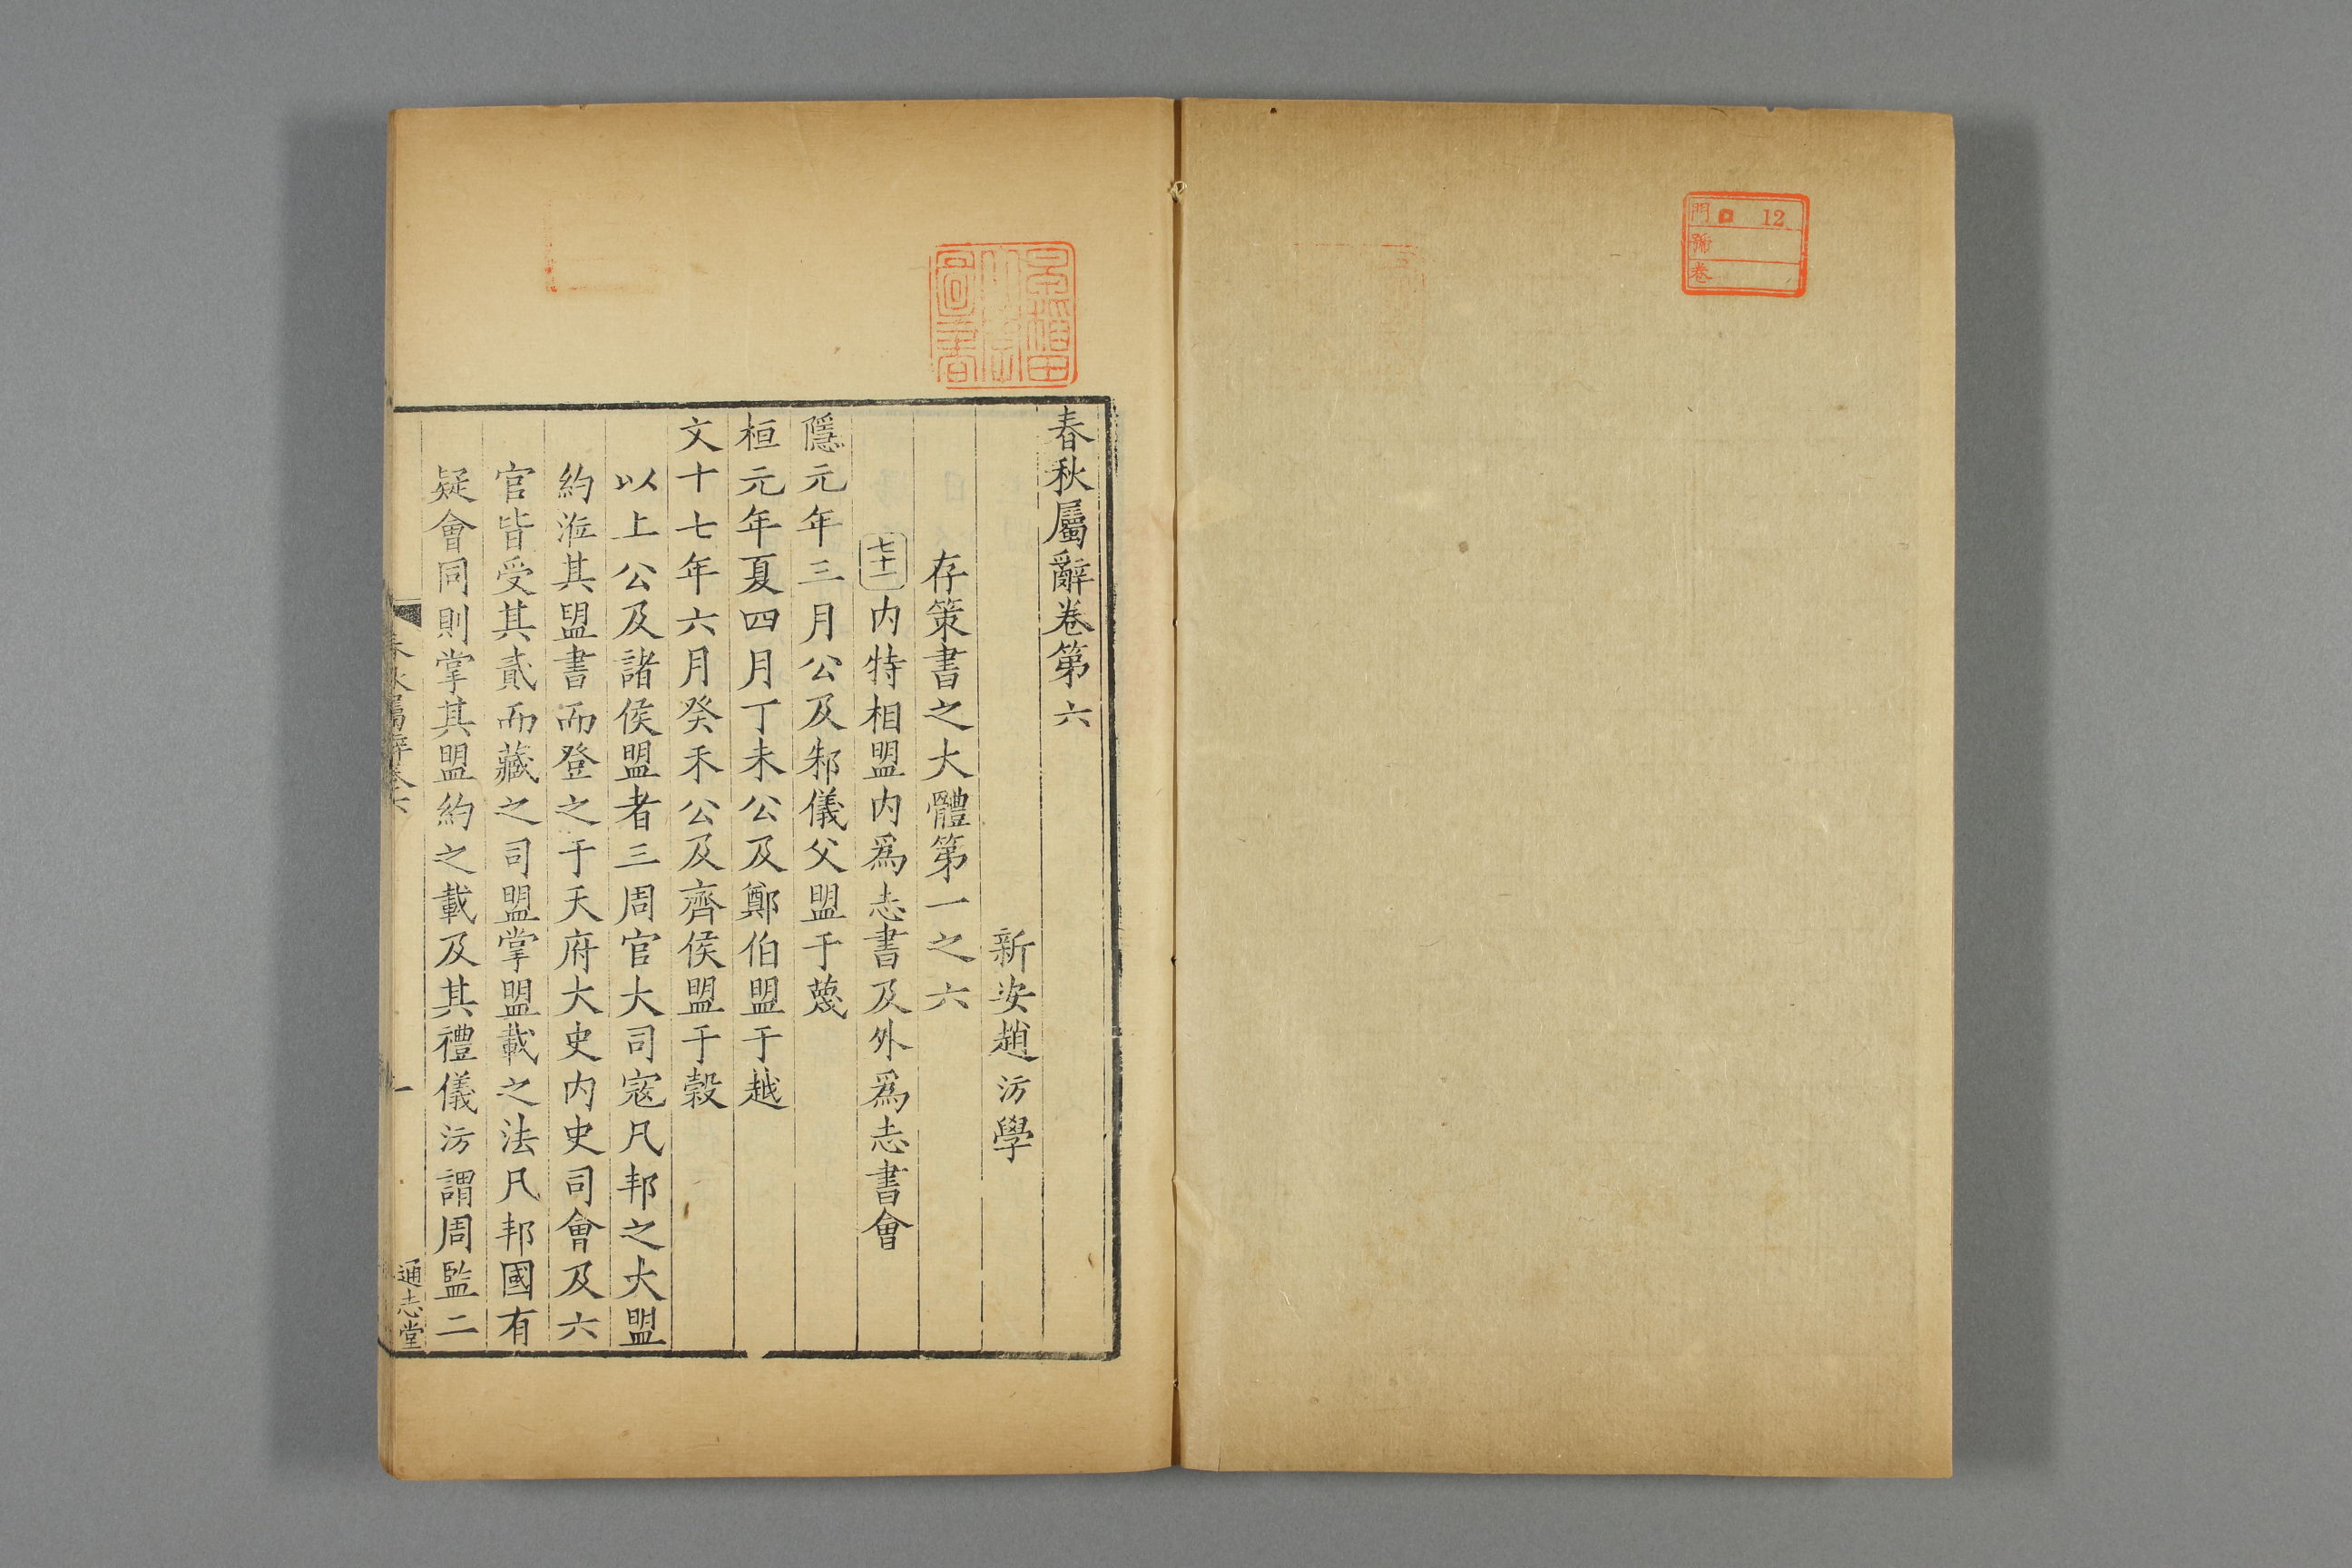 門 12
號
卷
春秋屬辭卷第六
新安趙汸學
存策書之大體第一之六
七十一内特相盟内爲志書及外爲志書會
隱元年三月公及邾儀父盟于蔑
桓元年夏四月丁未公及鄭伯盟于越
文十七年六月癸未公及齊侯盟于穀
以上公及諸侯盟者三周官大司寇凡邦之大盟
約涖其盟書而登之于天府大史内史司會及六
官皆受其貳而藏之司盟掌盟載之法凡邦國有
疑會同則掌其盟約之載及其禮儀汸謂周監二
春秋屬辭卷六
一
通志堂